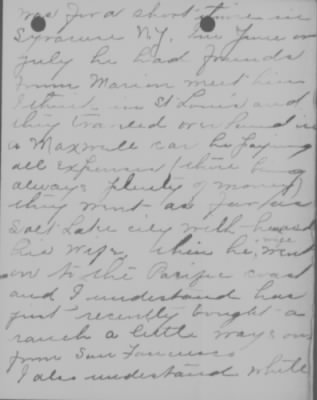 was for a short time in
Syracuse N.Y. In June or
July he had friends
from Marion meet him
I think in St Louis and
they traveled over land in
a Maxwell car he paying
all expenses (there being
always plenty of money)
they went as far as
Salt Lake city with
his wife, then he, went
on to the Pacific coast
and I understand has
just recently bought a
ranch a little ways out
from San Francisco
I also understand while